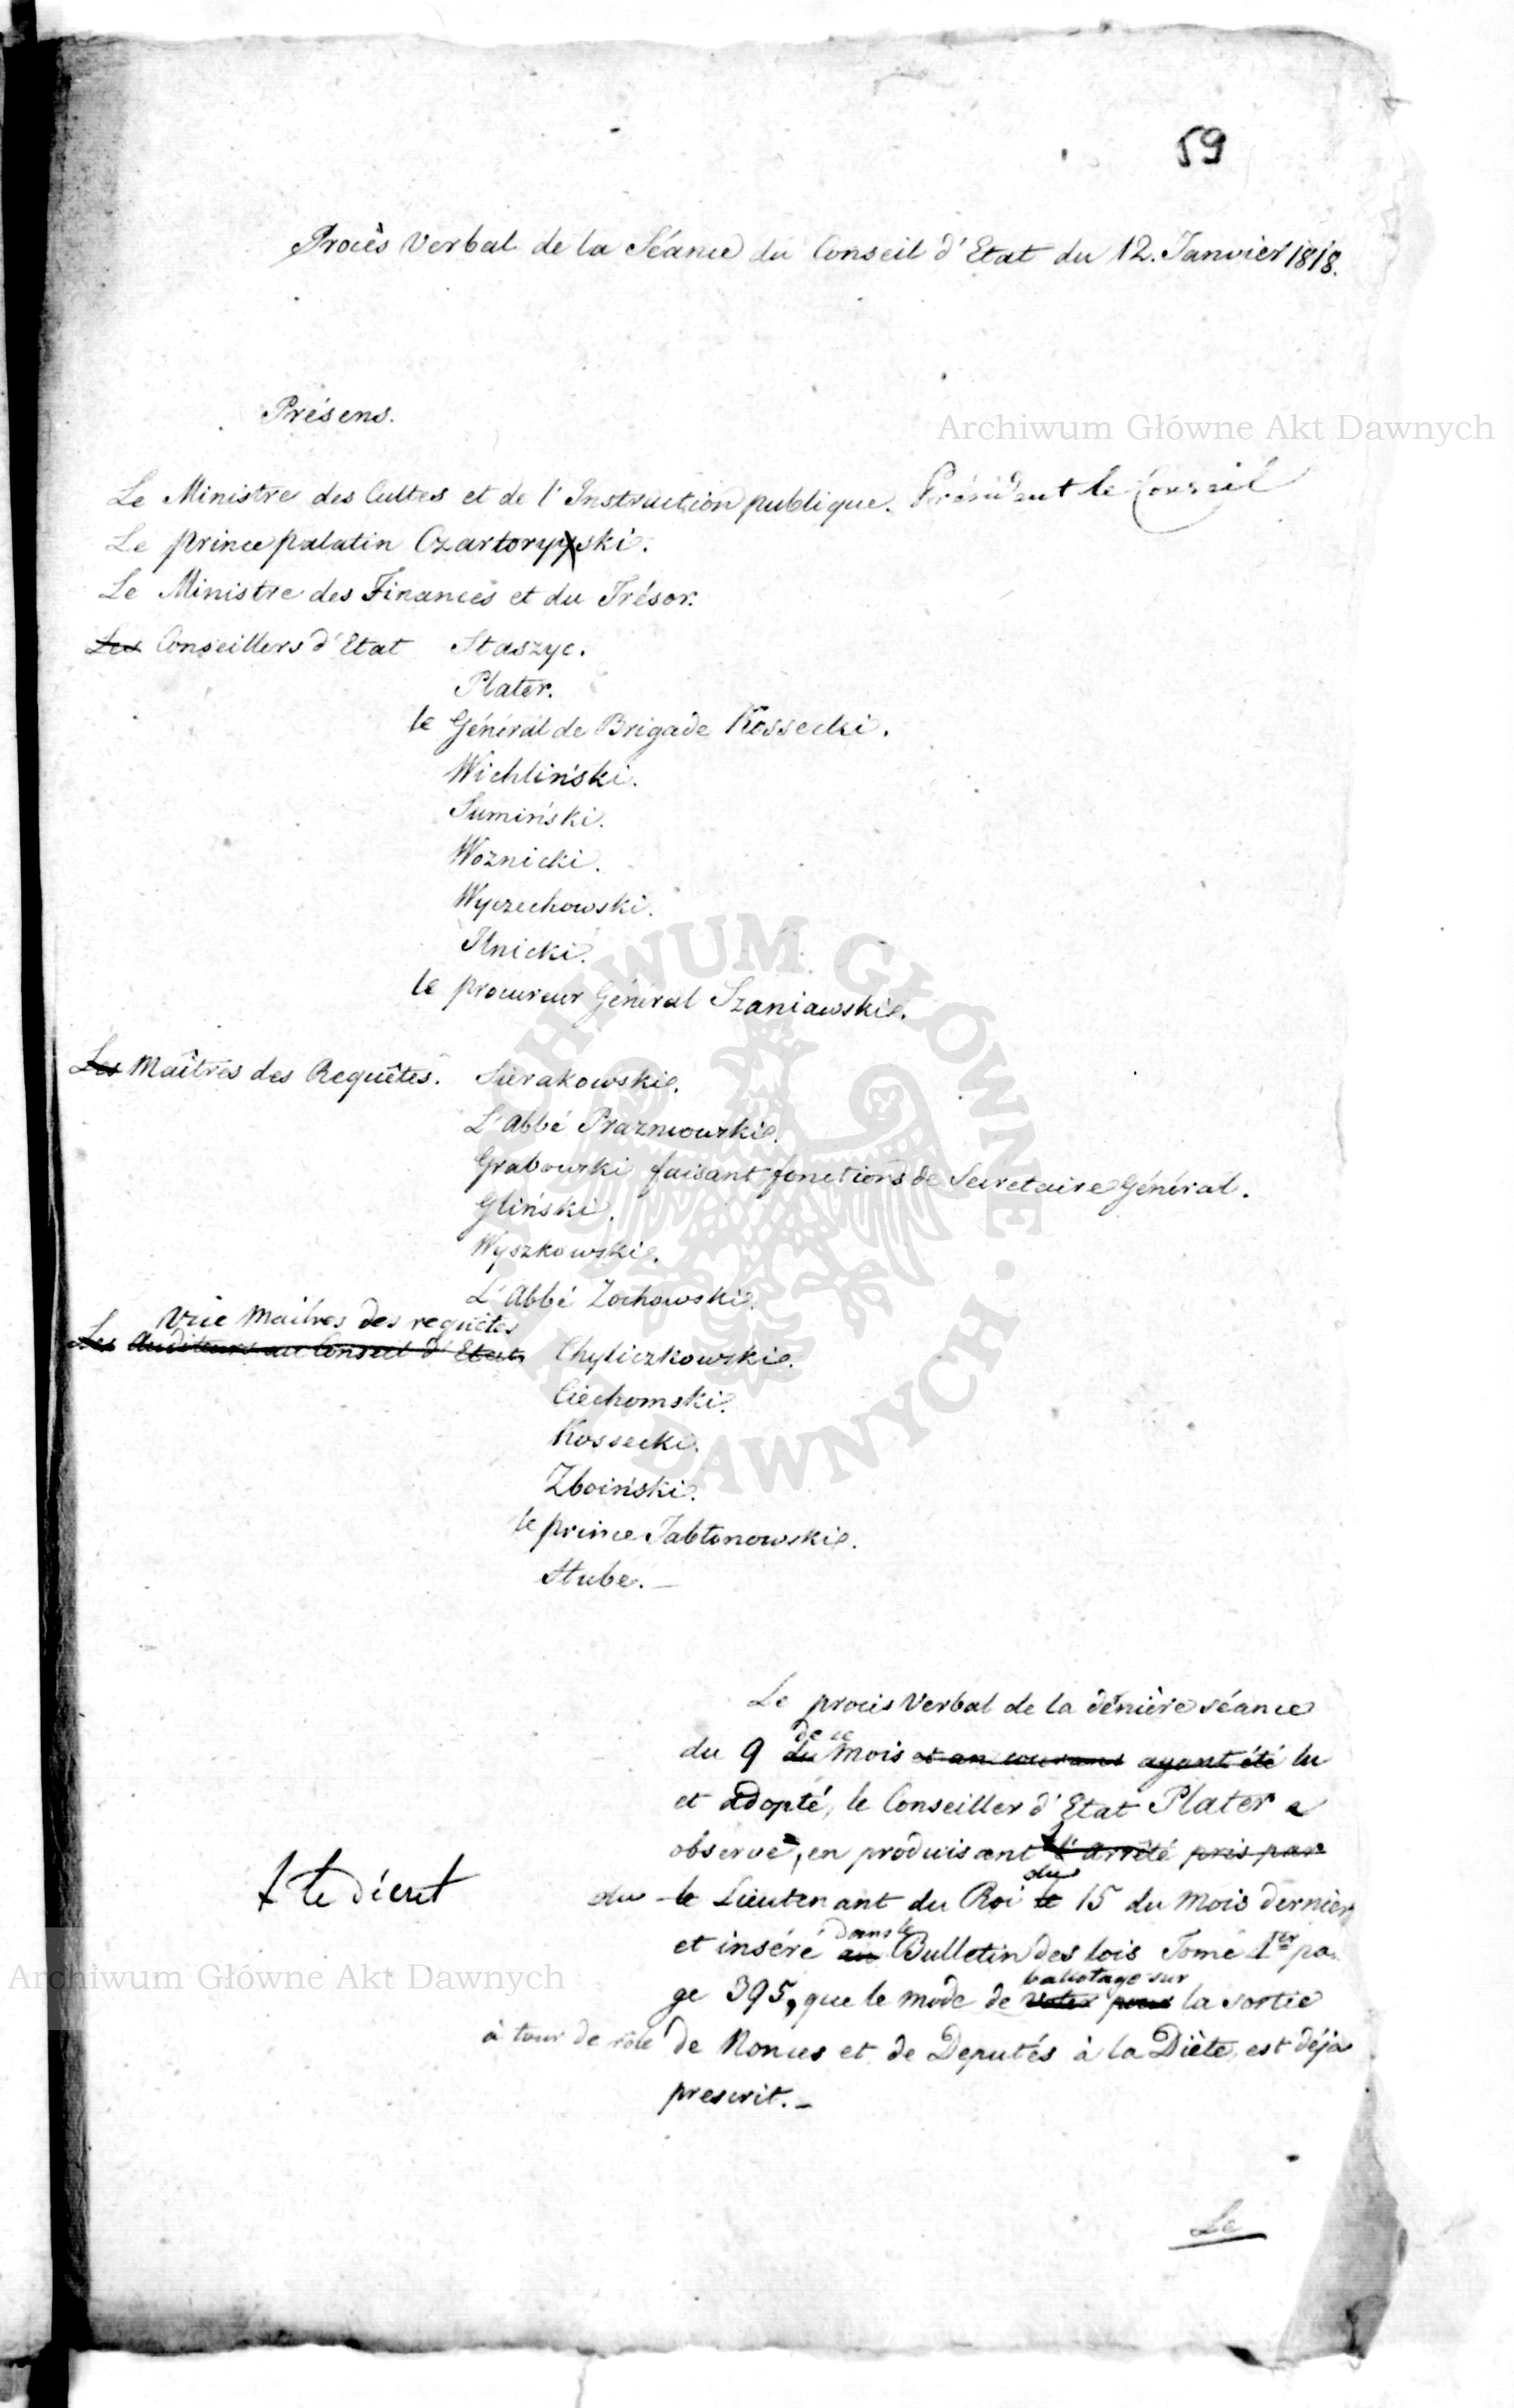 59
Procès Verbal de la Séance du Conseil d'Etat du 12. Janvier 1818.
Présens.
Archiwum Główne Akt Dawnych
Le Ministre des Cultes et de l'Instruction publique. Président le Conseil
Le prince palatin Czartoryyski.
Le Ministre des Finances et du Trésor.
Les Conseillers d'Etat Staszyc.
Plater.
le Général de Brigade Kossecki.
Wichliński.
Sumiński.
Woznicki.
Wyczechowski.
Ilnicki.
le procureur Général Szaniawski.
Les Maîtres des Requêtes. Sierakowski.
L'Abbé Prazmowski.
Grabowski faisant fonctions de Secretaire Général.
Gliński.
Wyszkowski.
L'Abbé Zochowski.
Vice Maitres des requêtes
Les Auditeurs au Conseil d'Etat Chyliczkowski.
Ciechomski.
Kossecki.
Zboiński.
le prince Jabłonowski.
Stube. –
Le procès Verbal de la dernière séance
de ce
du 9 du mois et an courant ayant été lu
et adopté, le Conseiller d'Etat Plater a
observé, en produisant l'arrêté pris par
ł le décret
du
du le Lieutenant du Roi le 15 du mois dernier
dans le
et inséré au Bulletin des lois Tome 1er pa
Archiwum Główne Akt Dawnych
ballotage sur
ge 395, que le mode de voter pour la sortie
à tour de rôle de Nonces et de Deputés à la Diète, est déjà
prescrit. –
Le
ARCHIWUM GŁÓWNE AKT DAWNYCH